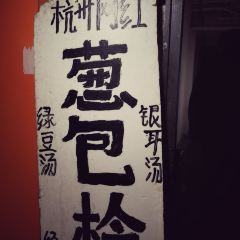 杭州网红
葱包桧
绿豆汤
银耳汤